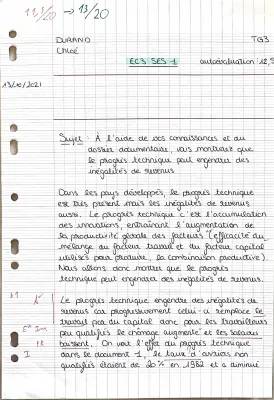 11,5/20 → 13/20
DURAND TG3
Chloé
EC3 SES 1 autoévaluation : 12,5
13/10/2021
Sujet : À l'aide de vos connaissances et du
dossier documentaire, vous montrerez que
le progrès technique peut engendrer des
inégalités de revenus
Dans les pays développés, le progrès technique
est très présent mais les inégalités de revenus
aussi. Le progrès technique c'est l'accumulation
des innovations, entraînant l'augmentation de
la productivité globale des facteurs (efficacité du
mélange du facteur travail et du facteur capital
utilisés pour produire, la combinaison productive).
Nous allons donc montrer que le progrès
technique peut engendrer des inégalités de revenus.
Le progrès technique engendre des inégalités de
revenus car progressivement celui-ci remplace le
travail par du capital donc pour les travailleurs
peu qualifiés le chômage augmente et les salaires
baissent. On voit l'effet du progrès technique
dans le document 1, le taux d'ouvriers non
qualifiés étaient de 20% en 1982 et a diminué